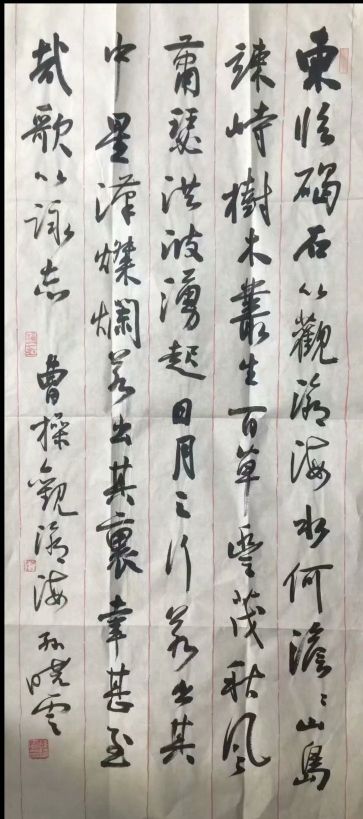 東临碣石以觀滄海水何澹〻山島
竦峙樹木叢生百草豐茂秋風
蕭瑟洪波湧起日月之行若出其
中星漢燦爛若出其裏幸甚至
哉歌以詠志 曹操觀滄海 孙曉雲